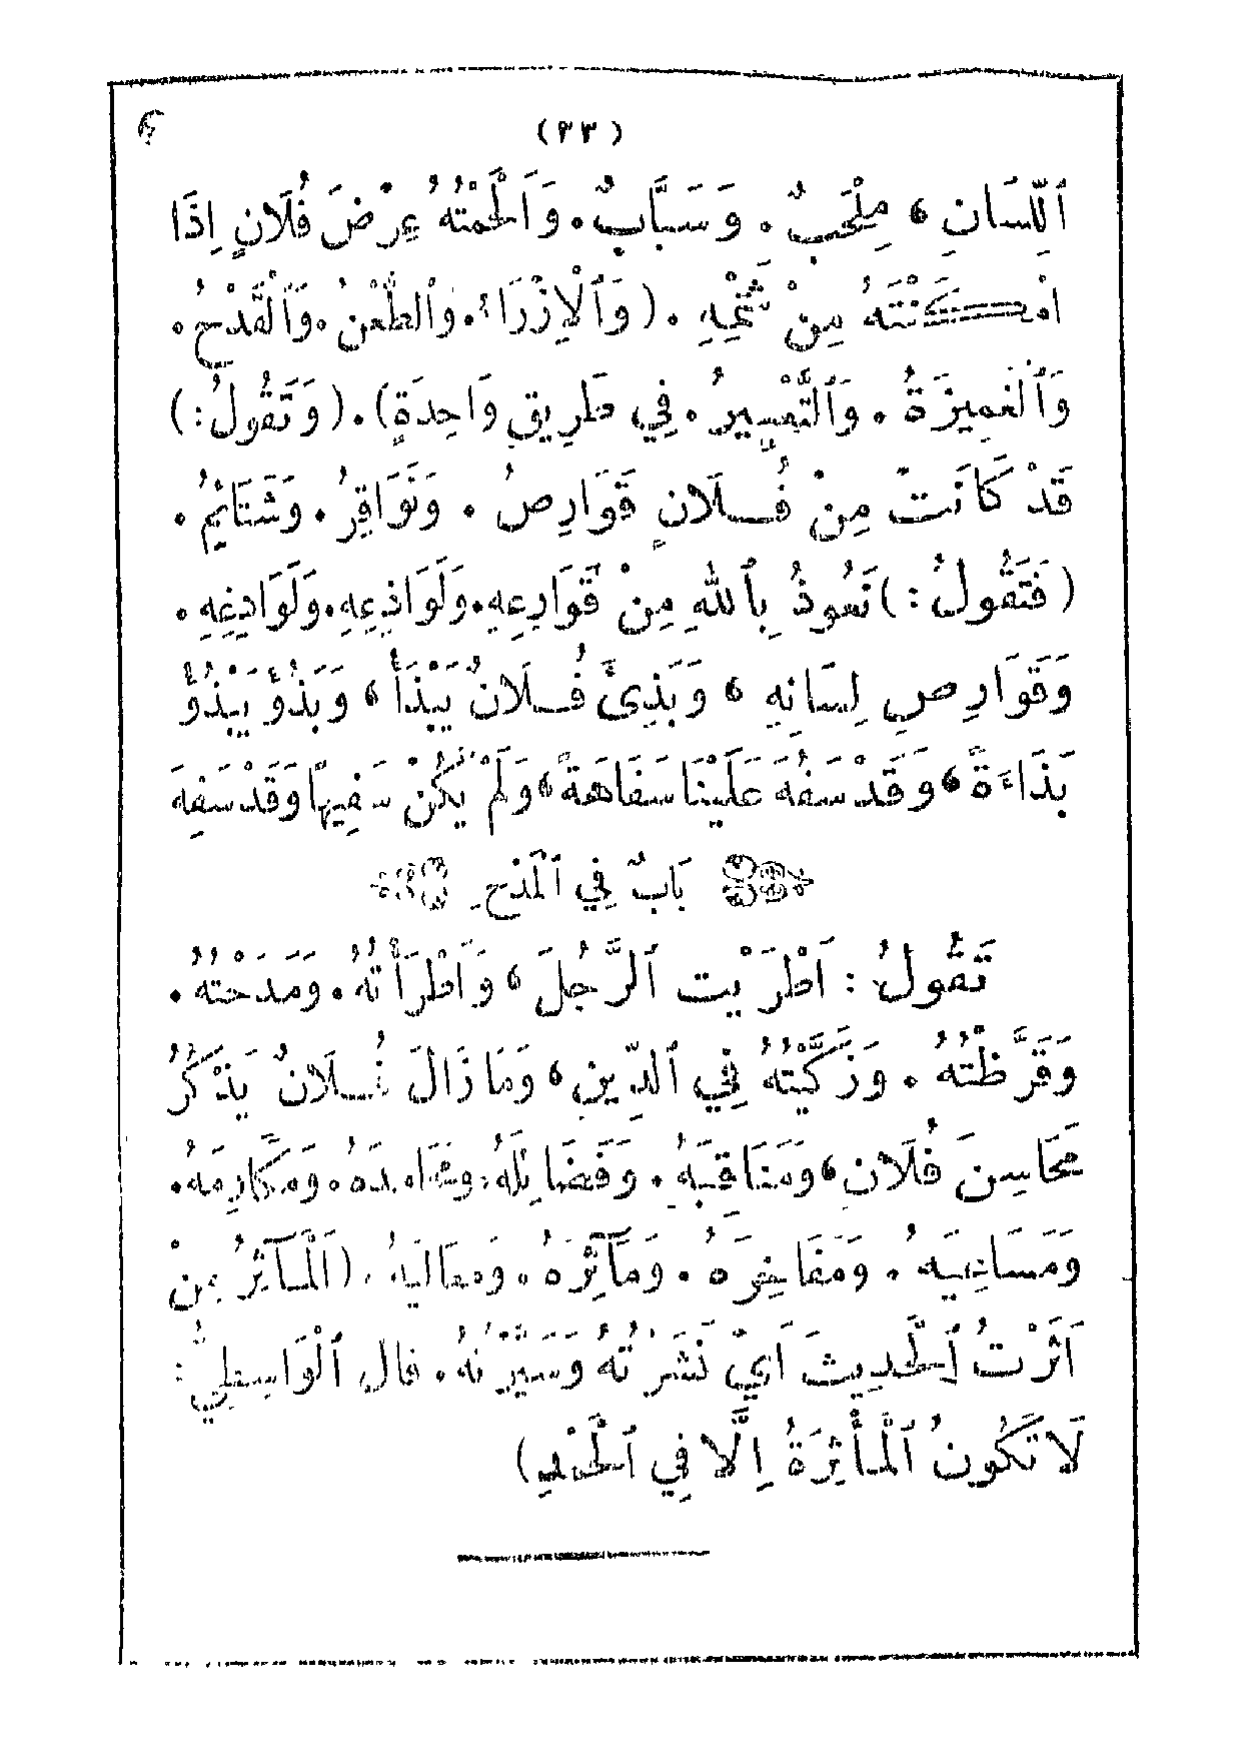 (٢٣)
ٱللِّسَانِ، مِلْحَبٌ. وَسَبَّابٌ. وَأَلْحَمْتُهُ عِرْضَ فُلَانٍ إِذَا
أَمْكَنْتَهُ مِنْ شَتْمِهِ. (وَٱلْإِزْرَاءُ. وَٱلطَّعْنُ. وَٱلْقَدْحُ.
وَٱلْغَمِيزَةُ. وَٱلتَّعْيِيرُ. فِي طَرِيقٍ وَاحِدَةٍ). (وَتَقُولُ:)
قَدْ كَانَتْ مِنْ فُلَانٍ قَوَارِصُ. وَنَوَاقِرُ. وَشَتَائِمُ.
(فَتَقُولُ:) نَعُوذُ بِٱللهِ مِنْ قَوَارِعِهِ. وَلَوَاذِعِهِ. وَلَوَادِغِهِ.
وَقَوَارِصِ لِسَانِهِ، وَبَذِئَ فُلَانٌ يَبْذَأُ، وَبَذُؤَ يَبْذُؤُ
بَذَاءَةً، وَقَدْ سَفُهَ عَلَيْنَا سَفَاهَةً، وَلَمْ يَكُنْ سَفِيهًا وَقَدْ سَفِهَ
بَابٌ فِي ٱلْمَدْحِ
تَقُولُ: أَطْرَيْتُ ٱلرَّجُلَ، وَأَطْرَأْتُهُ. وَمَدَحْتُهُ.
وَقَرَّظْتُهُ. وَزَكَّيْتُهُ فِي ٱلدِّينِ، وَمَا زَالَ فُلَانٌ يَذْكُرُ
مَحَاسِنَ فُلَانٍ، وَمَنَاقِبَهُ. وَفَضَائِلَهُ. وَمَحَامِدَهُ. وَمَكَارِمَهُ.
وَمَسَاعِيَهُ. وَمَفَاخِرَهُ. وَمَآثِرَهُ. وَمَعَالِيَهُ. (ٱلْمَآثِرُ مِنْ
أَثَرْتُ ٱلْحَدِيثَ أَيْ نَشَرْتُهُ وَسَيَّرْتُهُ. قَالَ ٱلْوَاسِطِيُّ:
لَا تَكُونُ ٱلْمَأْثِرَةُ إِلَّا فِي ٱلْحَمْدِ)